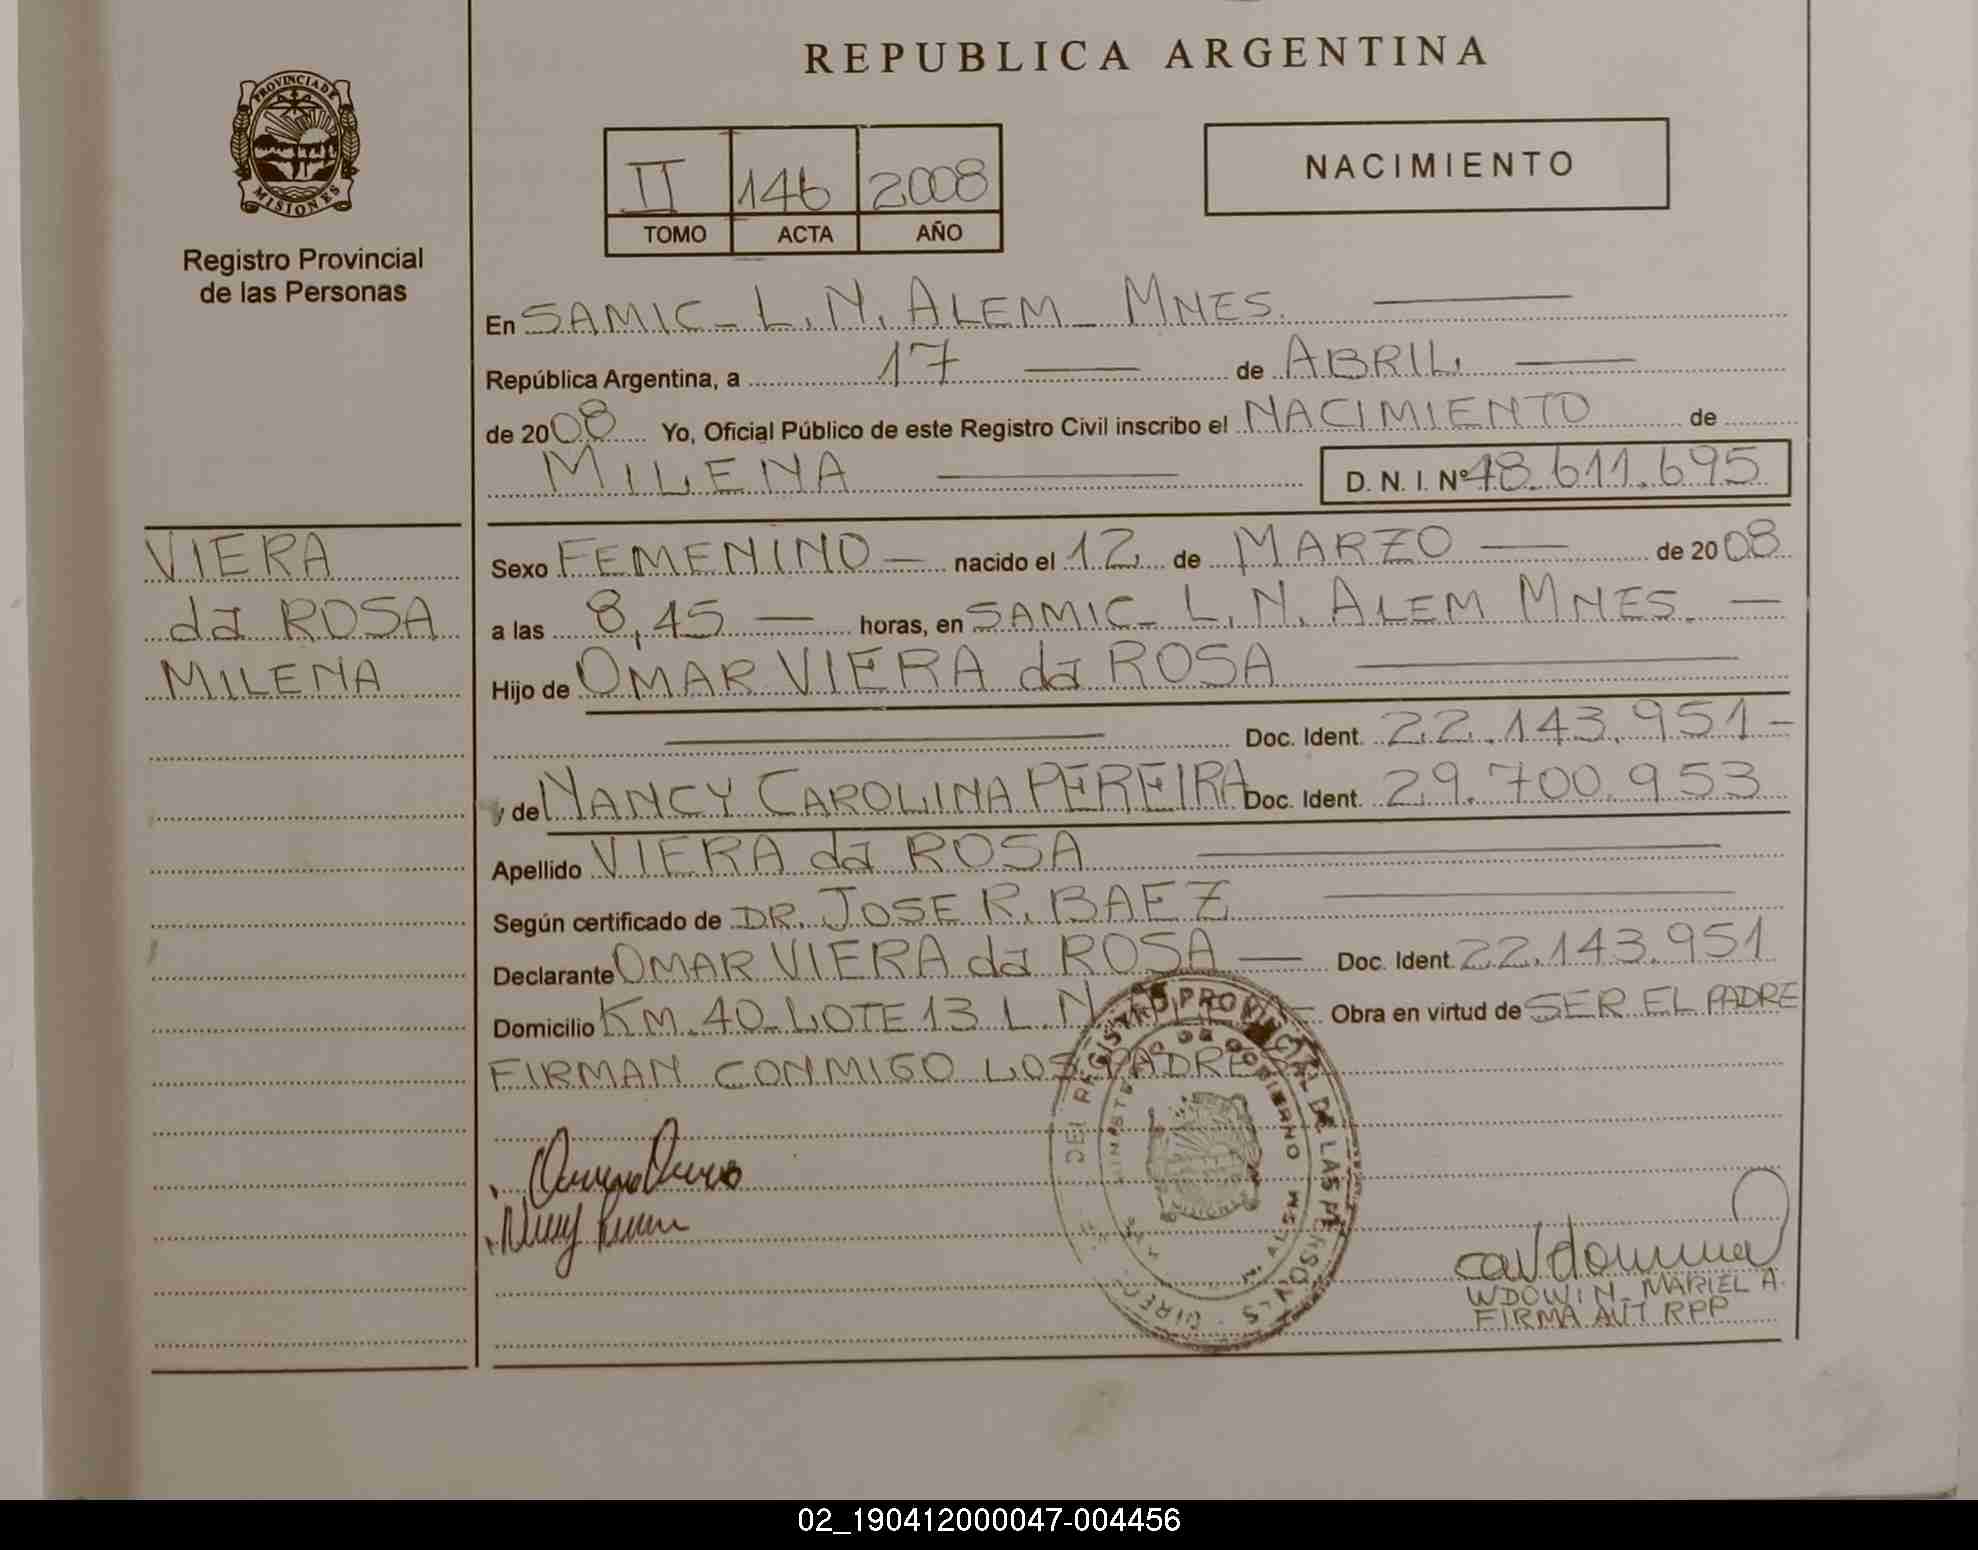 REPUBLICA ARGENTINA
PROVINCIA DE
MISIONES
Registro Provincial
de las Personas
II 146 2008
TOMO ACTA AÑO
NACIMIENTO
En SAMIC - L. N. ALEM - MNES.
República Argentina, a 17 de ABRIL.
de 2008 Yo, Oficial Público de este Registro Civil inscribo el NACIMIENTO de
MILENA D. N. I. Nº 48.611.695
VIERA
da ROSA
MILENA
Sexo FEMENINO nacido el 12 de MARZO de 2008
a las 8,45 horas, en SAMIC - L. N. ALEM MNES.
Hijo de OMAR VIERA da ROSA
Doc. Ident. 22.143.951
y de NANCY CAROLINA PEREIRA Doc. Ident. 29.700.953
Apellido VIERA da ROSA
Según certificado de DR. JOSE R. BAEZ
Declarante OMAR VIERA da ROSA Doc. Ident. 22.143.951
Domicilio KM. 40 LOTE 13 L. N. Obra en virtud de SER EL PADRE
FIRMAN CONMIGO LOS PADRES
DEL REGISTRO PROVINCIAL DE LAS PERSONAS
GOBIERNO
WDOWIN - MARIEL A.
FIRMA AUT RPP
02_190412000047-004456